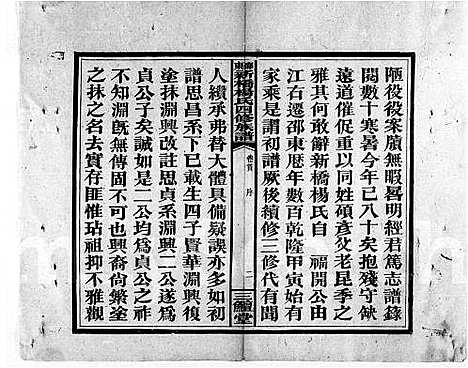 陋役役案牘無暇曷明經君篤志譜錄
閱數十寒暑今年已八十矣抱殘守缺
遠道催促重以同姓碩彥父老昆季之
雅其何敢辭新橋楊氏自　福開公由
江右遷邵東歷年數百乾隆甲寅始有
家乘是謂初譜厥後續修三修代有聞
新橋楊氏四修族譜
卷首　序
二
三鱣堂
人纘承弗替大體具備疑誤亦多如初
譜思昌系下已載生四子賈華淵興復
塗抹淵興改註思貞系淵興二公遂爲
貞公子矣誠如是二公均爲貞公之祚
不知淵既無傳固不可也興裔尚繁塗
之抹之名去實存匪惟玷祖抑不雅觀